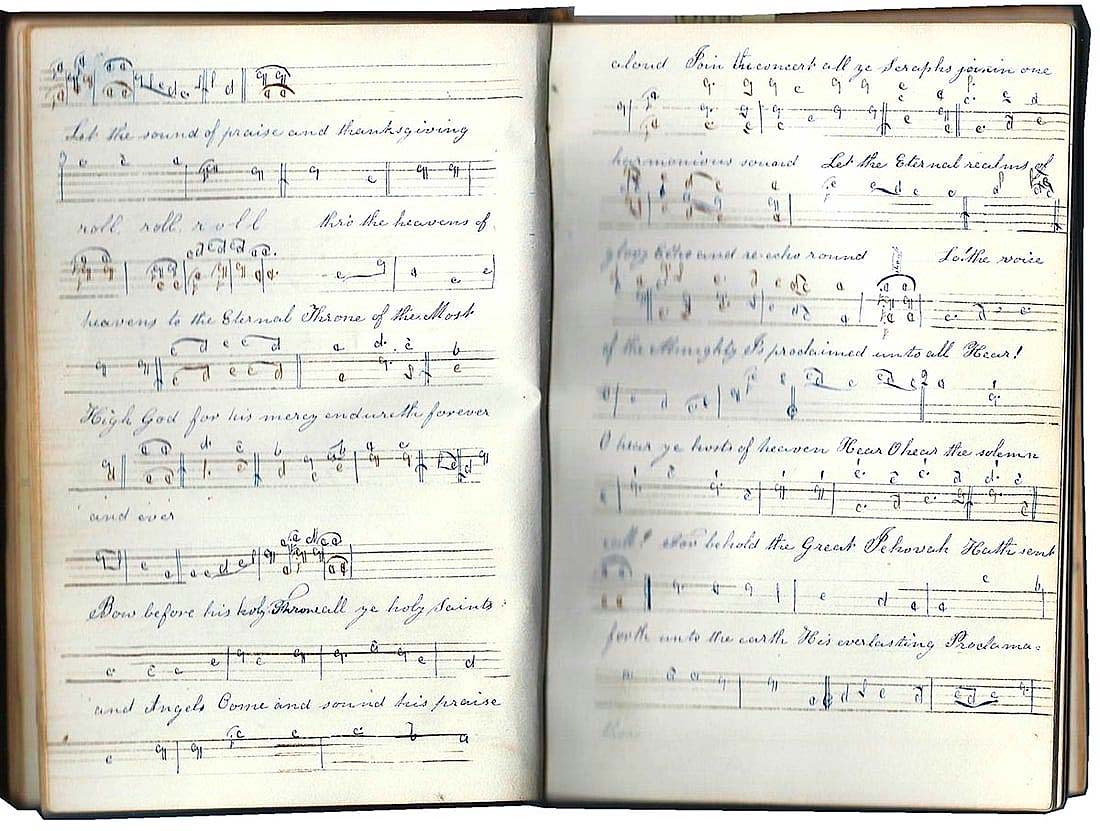 Let the sound of praise and thanksgiving
roll roll roll thro the heavens of
heavens to the Eternal Throne of the Most
High God for his mercy endureth forever
and ever
Bow before his holy Throne all ye holy Saints
and Angels Come and sound his praise
aloud Join the concert all ye Seraphs join in one
harmonious sound Let the Eternal realms of
glory Echo and re-echo round Lo! the voice
of the Almighty Is proclaimed unto all Hear!
O hear ye hosts of heaven Hear O hear the solemn
call! For behold the Great Jehovah Hath sent
forth unto the earth His everlasting Proclama=
tion